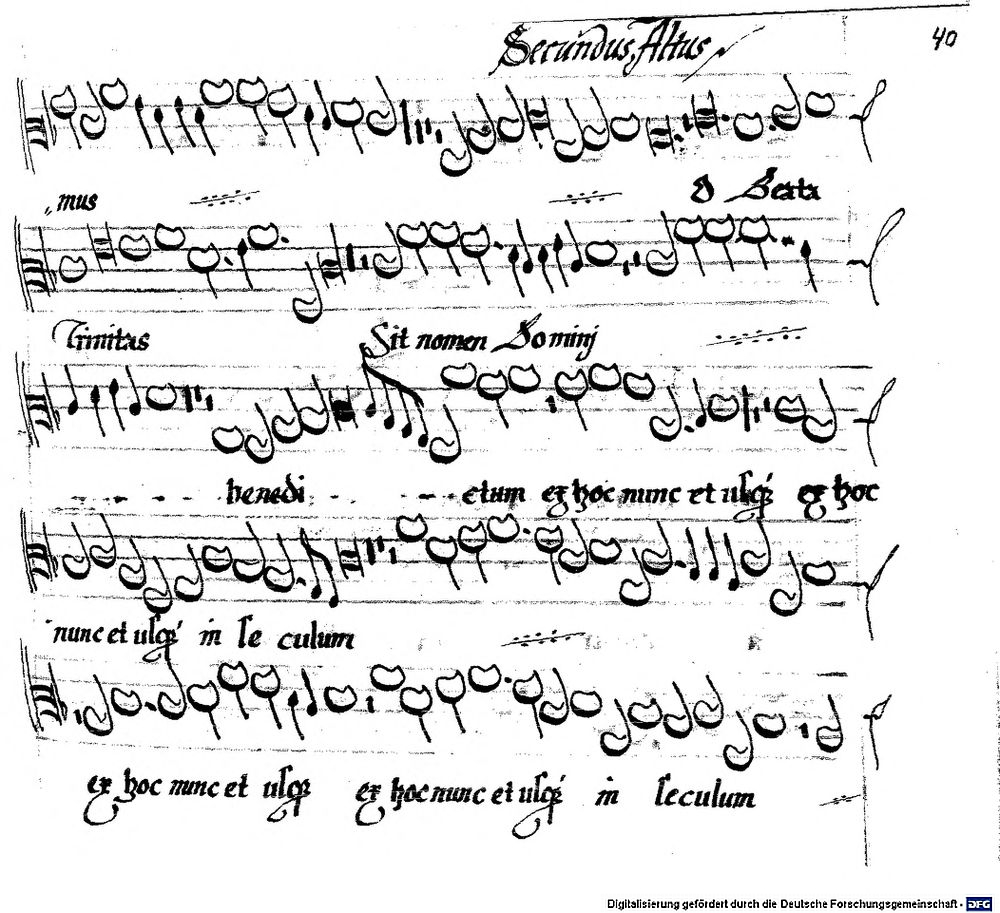 Secundus Altus
40
mus O Beata
Trinitas Sit nomen Dominj
benedi - - - ctum ex hoc nunc et usq́ ex hoc
nunc et usq́ in seculum
ex hoc nunc et usq́ ex hoc nunc et usq́ in seculum
Digitalisierung gefördert durch die Deutsche Forschungsgemeinschaft - DFG